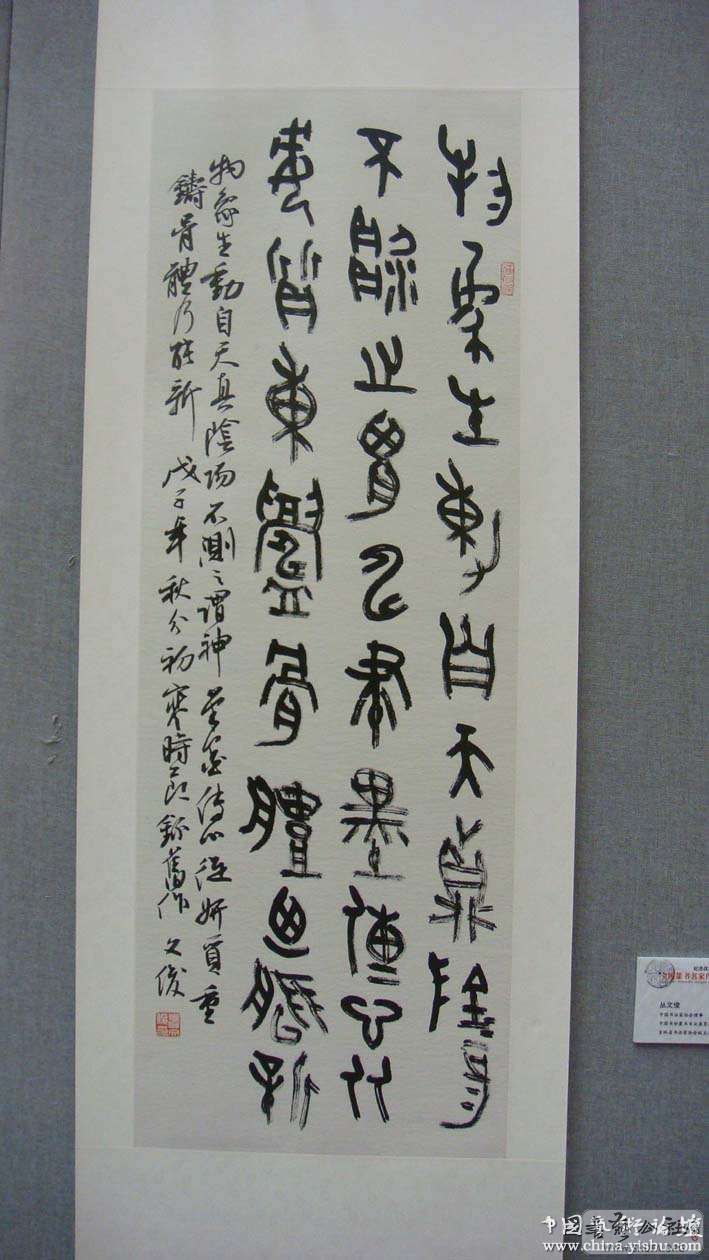 物象生動自天真陰陽
不測之謂神筆墨傳心从
妍質重鑄骨體迺能新
物象生動自天真陰陽不測之謂神筆墨傳心從妍質重
鑄骨體乃能新 戊子年秋分初寒時節錄舊作 文俊
篆书名家
丛文俊
中国书法家协会理事
www.china-yishu.com